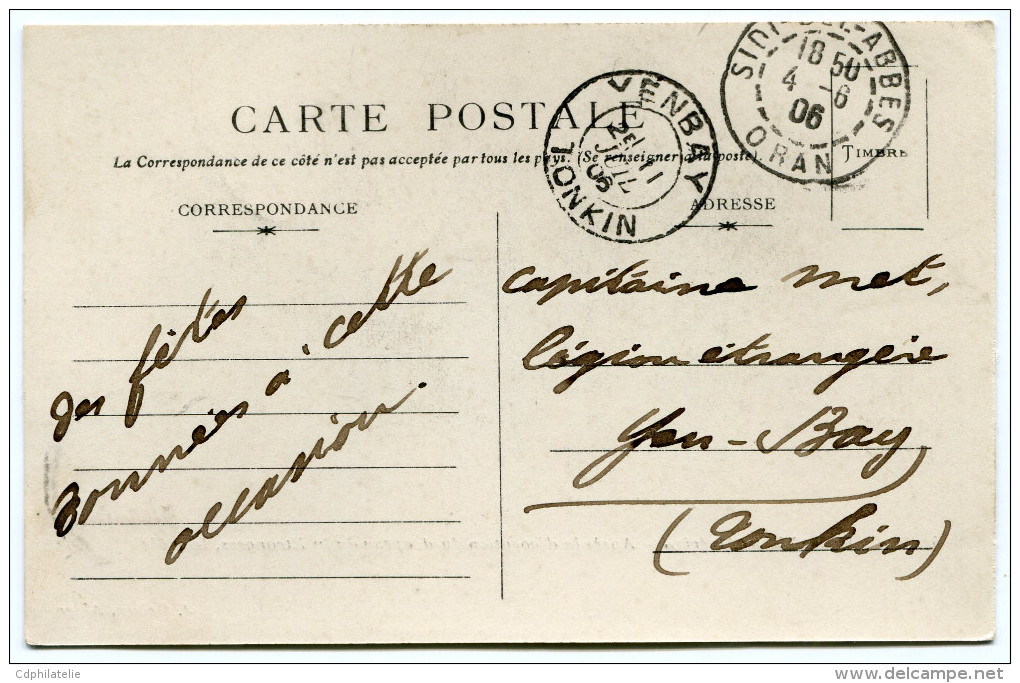 CARTE POSTALE
La Correspondance de ce côté n'est pas acceptée par tous les pays. (Se renseigner à la poste).
SIDI-BEL-ABBES
18 50
4 - 6
06
ORAN
YENBAY
11
JUIL
06
TONKIN
TIMBRE
CORRESPONDANCE
ADRESSE
des fêtes
données à cette
occasion.
capitaine met,
légion étrangère
Yen-Bay
(Tonkin)
Cdphilatelie
www.delcampe.net